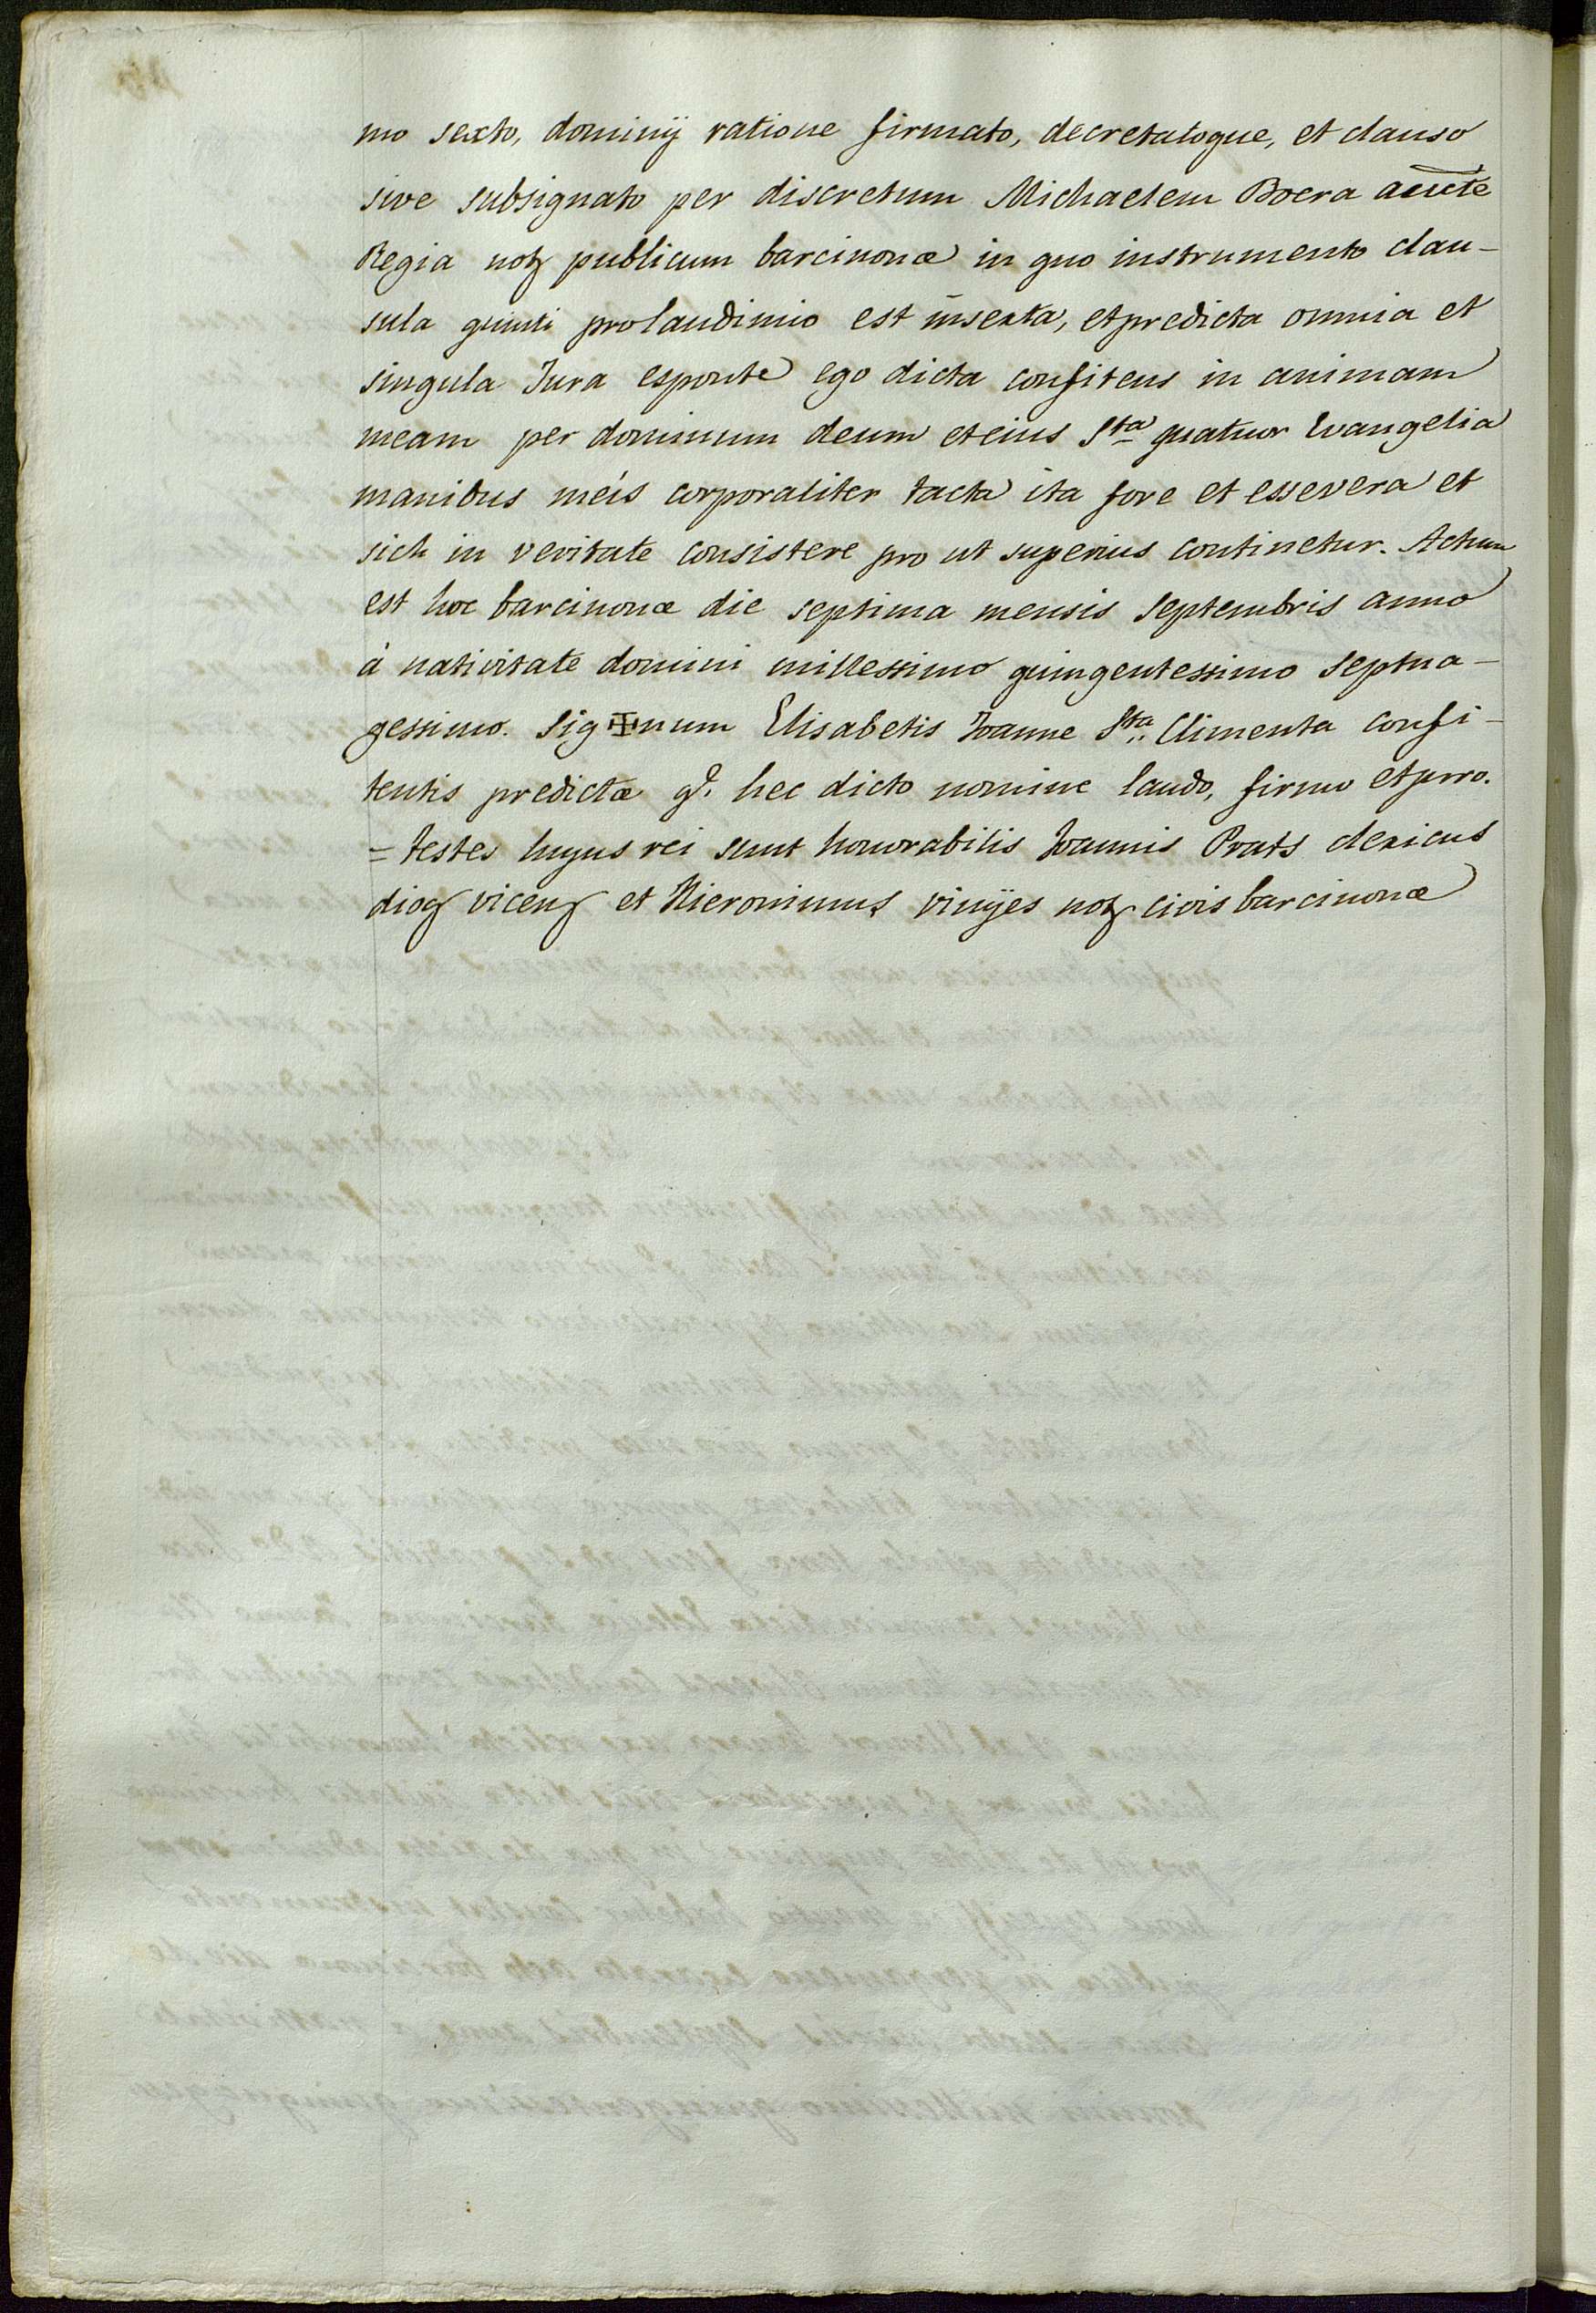 mo sexto, dominij ratione firmato, decretatoque, et clauso
sive subsignato per discretum Michaelem Boera aucte
Regia notʒ publicum barcinonæ in quo instrumento clau-
sula quinti pro laudimio est inserta, et predicta omnia et
singula Jura esponte ego dicta confitens in animam
meam per dominum deum et eius Sta quatuor Evangelia
manibus meis corporaliter tacta ita fore et esse vera et
sich in veritate consistere pro ut superius continetur. Actum
est hoc barcinonæ die septima mensis septembris anno
à nativitate domini millessimo quingentessimo septua-
gessimo. Sig✠num Elisabetis Joanne Sta Climenta confi-
tentis predictæ q. hec dicto nomine laudo, firmo et pro.
= testes hujus rei sunt honorabilis Joannis Prats clericus
diog vicenʒ et Hieronimus vinyes notʒ civis barcinonæ